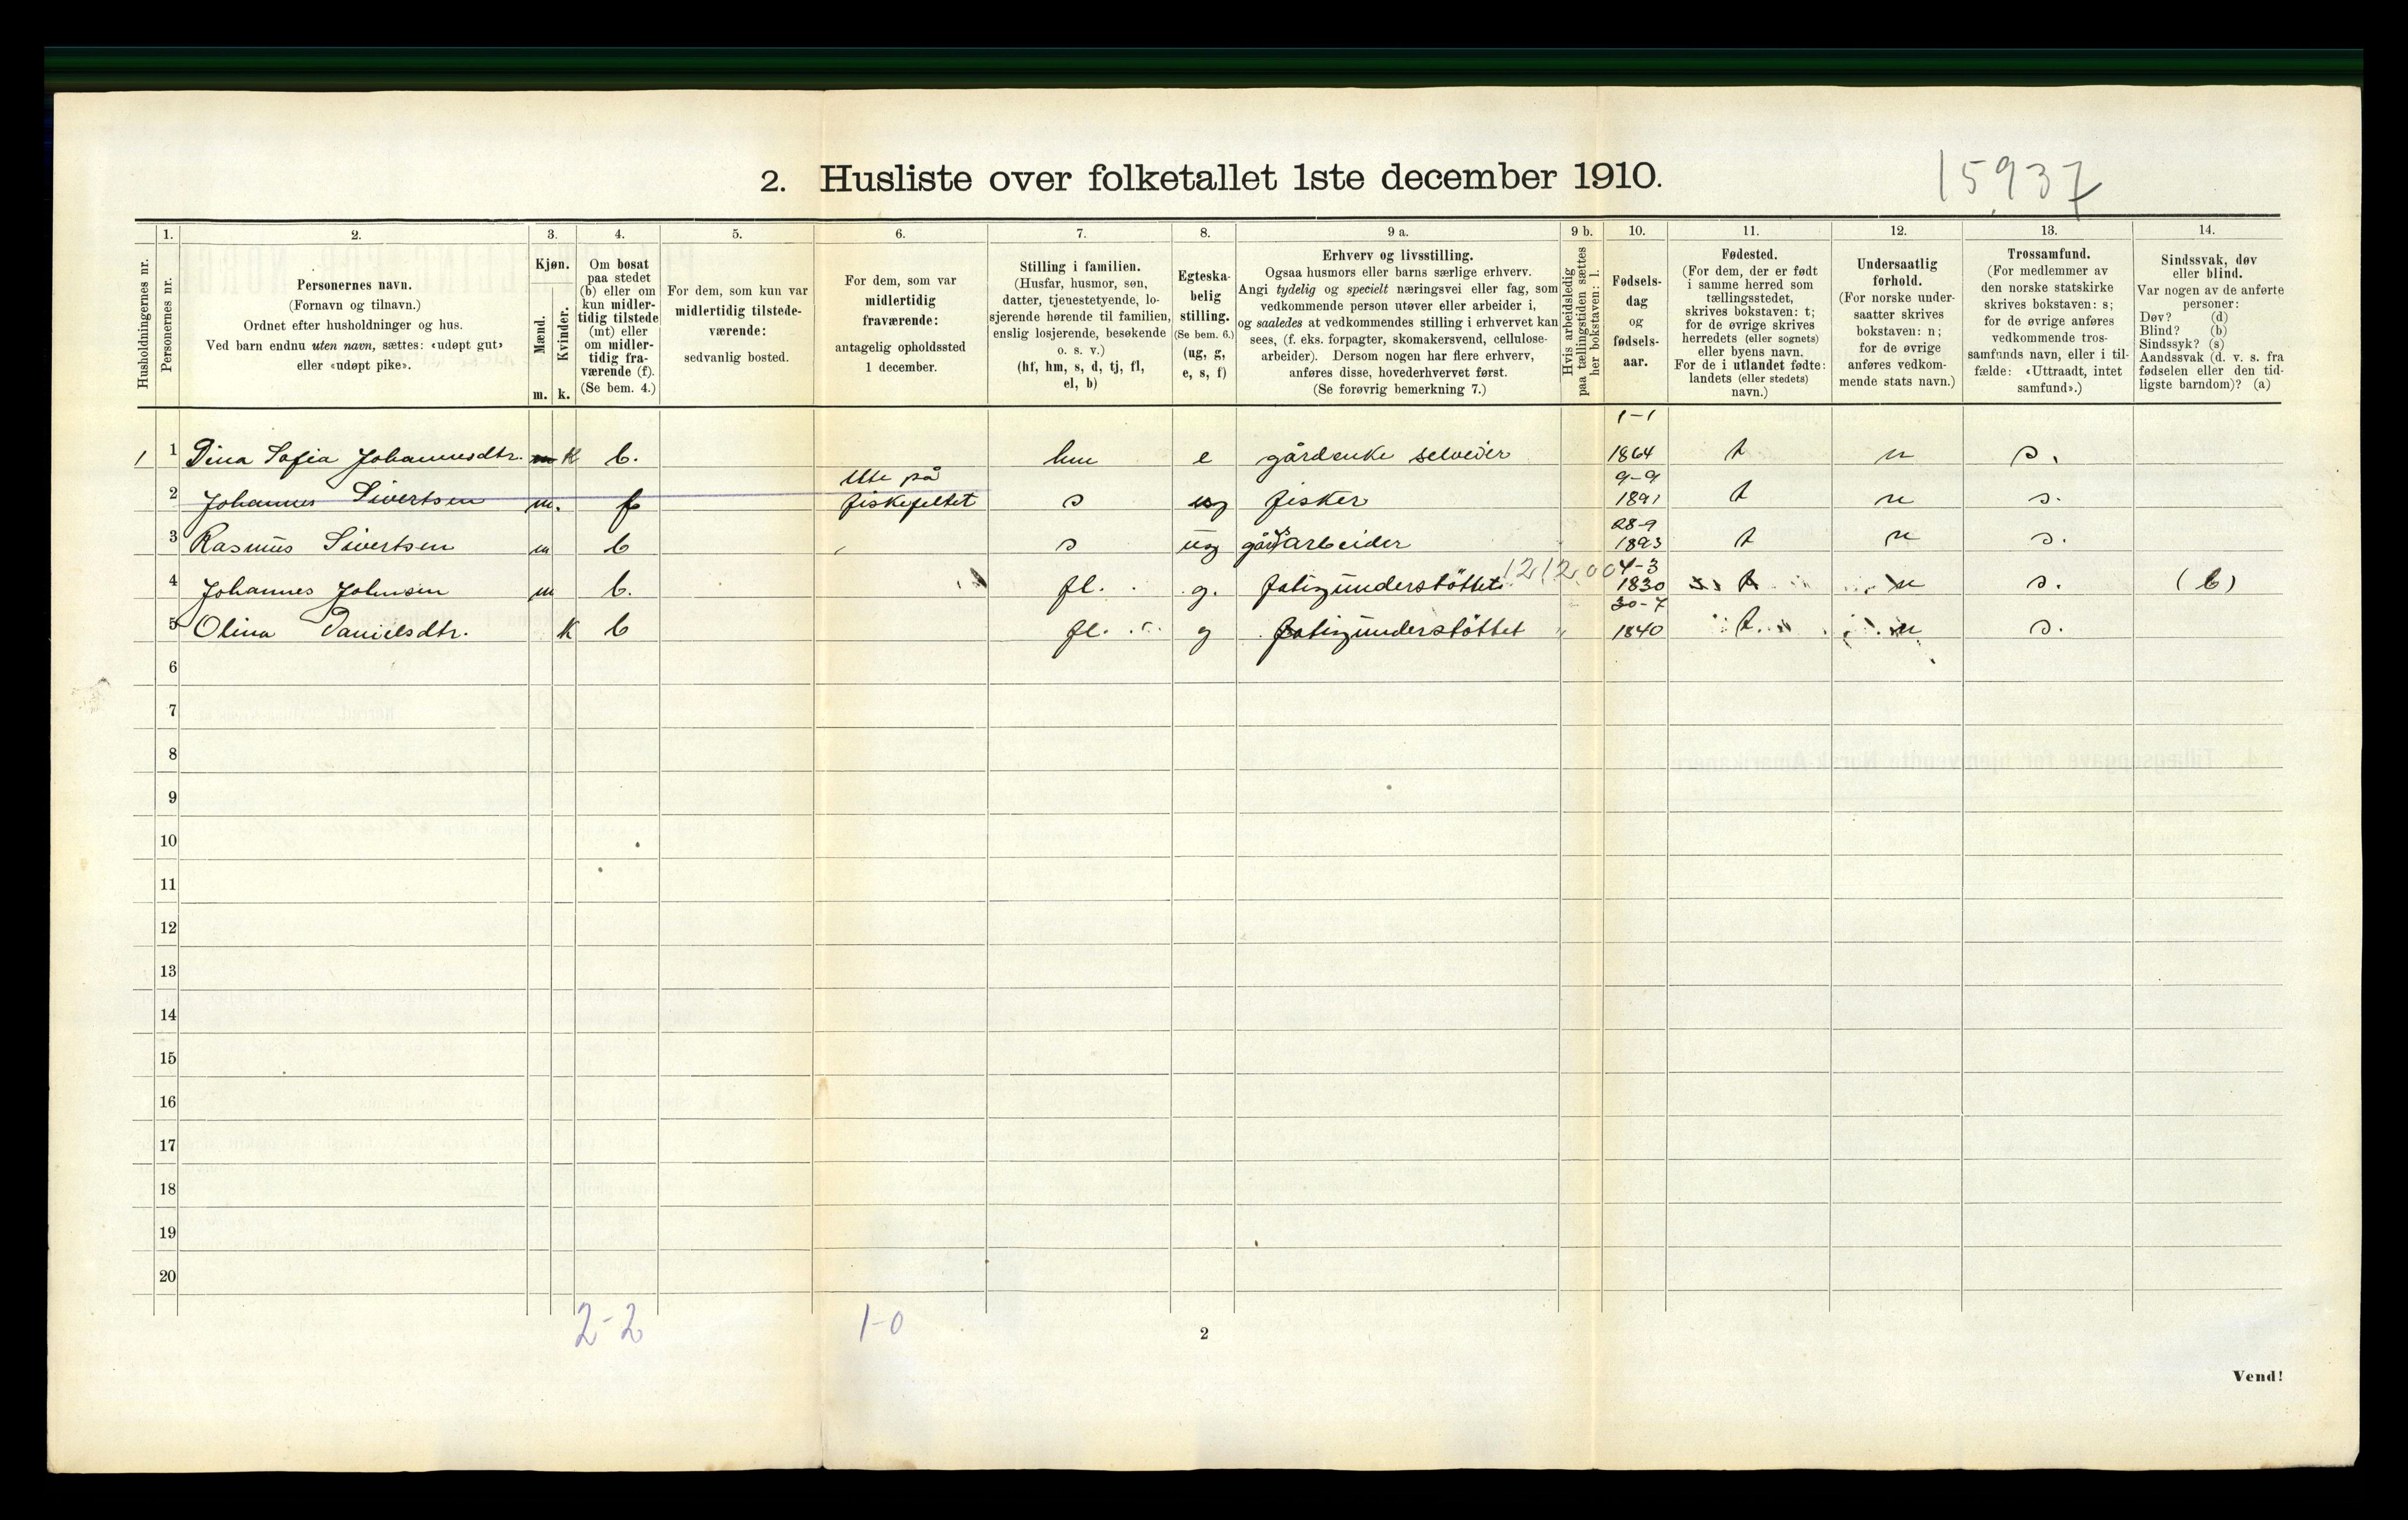 15937
2. Husliste over folketallet 1ste december 1910.
Husholdningernes nr.
1.
Personernes nr.
2.
Personernes navn.
(Fornavn og tilnavn.)
Ordnet efter husholdninger og hus.
Ved barn endnu uten navn, sættes: «udøpt gut»
eller «udøpt pike».
3.
Kjøn.
Mænd.
Kvinder.
m. k.
4.
Om bosat
paa stedet
(b) eller om
kun midler-
tidig tilstede
(mt) eller
om midler-
tidig fra-
værende (f).
(Se bem. 4.)
5.
For dem, som kun var
midlertidig tilstede-
værende:
sedvanlig bosted.
6.
For dem, som var
midlertidig
fraværende:
antagelig opholdssted
1 december.
7.
Stilling i familien.
(Husfar, husmor, søn,
datter, tjenestetyende, lo-
sjerende hørende til familien,
enslig losjerende, besøkende
o. s. v.)
(hf, hm, s, d, tj, fl,
el, b)
8.
Egteska-
belig
stilling.
(Se bem. 6.)
(ug, g,
e, s, f)
9 a.
Erhverv og livsstilling.
Ogsaa husmors eller barns særlige erhverv.
Angi tydelig og specielt næringsvei eller fag, som
vedkommende person utøver eller arbeider i,
og saaledes at vedkommendes stilling i erhvervet kan
sees, (f. eks. forpagter, skomakersvend, cellulose-
arbeider). Dersom nogen har flere erhverv,
anføres disse, hovederhvervet først.
(Se forøvrig bemerkning 7.)
9 b.
Hvis arbeidsledig
paa tællingstiden sættes
her bokstaven: l.
10.
Fødsels-
dag
og
fødsels-
aar.
11.
Fødested.
(For dem, der er født
i samme herred som
tællingsstedet,
skrives bokstaven: t;
for de øvrige skrives
herredets (eller sognets)
eller byens navn.
For de i utlandet fødte:
landets (eller stedets)
navn.)
12.
Undersaatlig
forhold.
(For norske under-
saatter skrives
bokstaven: n;
for de øvrige
anføres vedkom-
mende stats navn.)
13.
Trossamfund.
(For medlemmer av
den norske statskirke
skrives bokstaven: s;
for de øvrige anføres
vedkommende tros-
samfunds navn, eller i til-
fælde: «Uttraadt, intet
samfund».)
14.
Sindssvak, døv
eller blind.
Var nogen av de anførte
personer:
Døv? (d)
Blind? (b)
Sindssyk? (s)
Aandssvak (d. v. s. fra
fødselen eller den tid-
ligste barndom)? (a)
1 1 Dina Sofia Johannesdtr. m k b. hm e gårdenke selveier 1-1 1864 t n s.
2 Johannes Sivertsen m. f Ute på fiskefeltet s ug fisker 9-9 1891 t n s.
3 Rasmus Sivertsen m b s ug gårdsarbeider 28-9 1893 t n s.
4 Johannes Johnsen m b. fl. g. fatigunderstöttet 1212.00 4-3 1830 t n s. (b)
5 Olina Danielsdtr. k b fl. g fatigunderstöttet 30-7 1840 t. n s.
6
7
8
9
10
11
12
13
14
15
16
17
18
19
20
2-2 1-0
2
Vend!